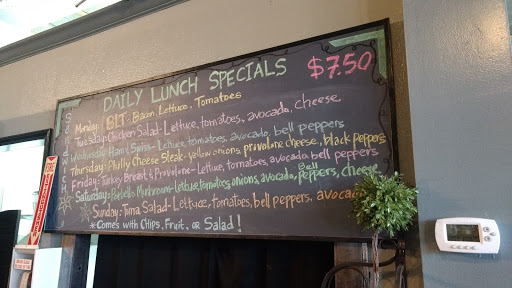 DAILY LUNCH SPECIALS $7.50
Monday: BLT: Bacon, Lettuce, Tomatoes
Tuesday: Chicken Salad - Lettuce, tomatoes, avocado, cheese
Wednesday: Ham & Swiss - Lettuce, tomatoes, avocado, bell peppers
Thursday: Philly Cheese Steak - yellow onions, provolone cheese, black peppers
Friday: Turkey Breast & Provolone - Lettuce, tomatoes, avocado, bell peppers
Saturday: Portobello Mushroom - Lettuce, tomatoes, onions, avocado, Bell peppers, cheese
Sunday: Tuna Salad - Lettuce, tomatoes, bell peppers, avocado
* Comes with Chips, Fruit, or Salad!
FIRE